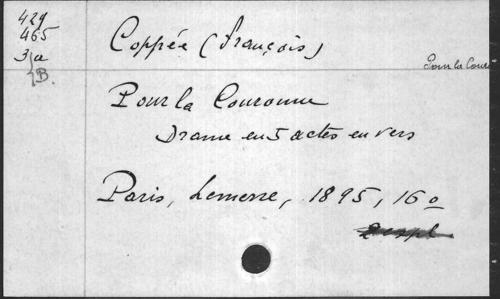 429
465
3 a
B.
Coppée (François)
Pour la Cour
Pour la Couronne
Drame en 5 actes en vers
Paris, Lemerre, 1895, 16o